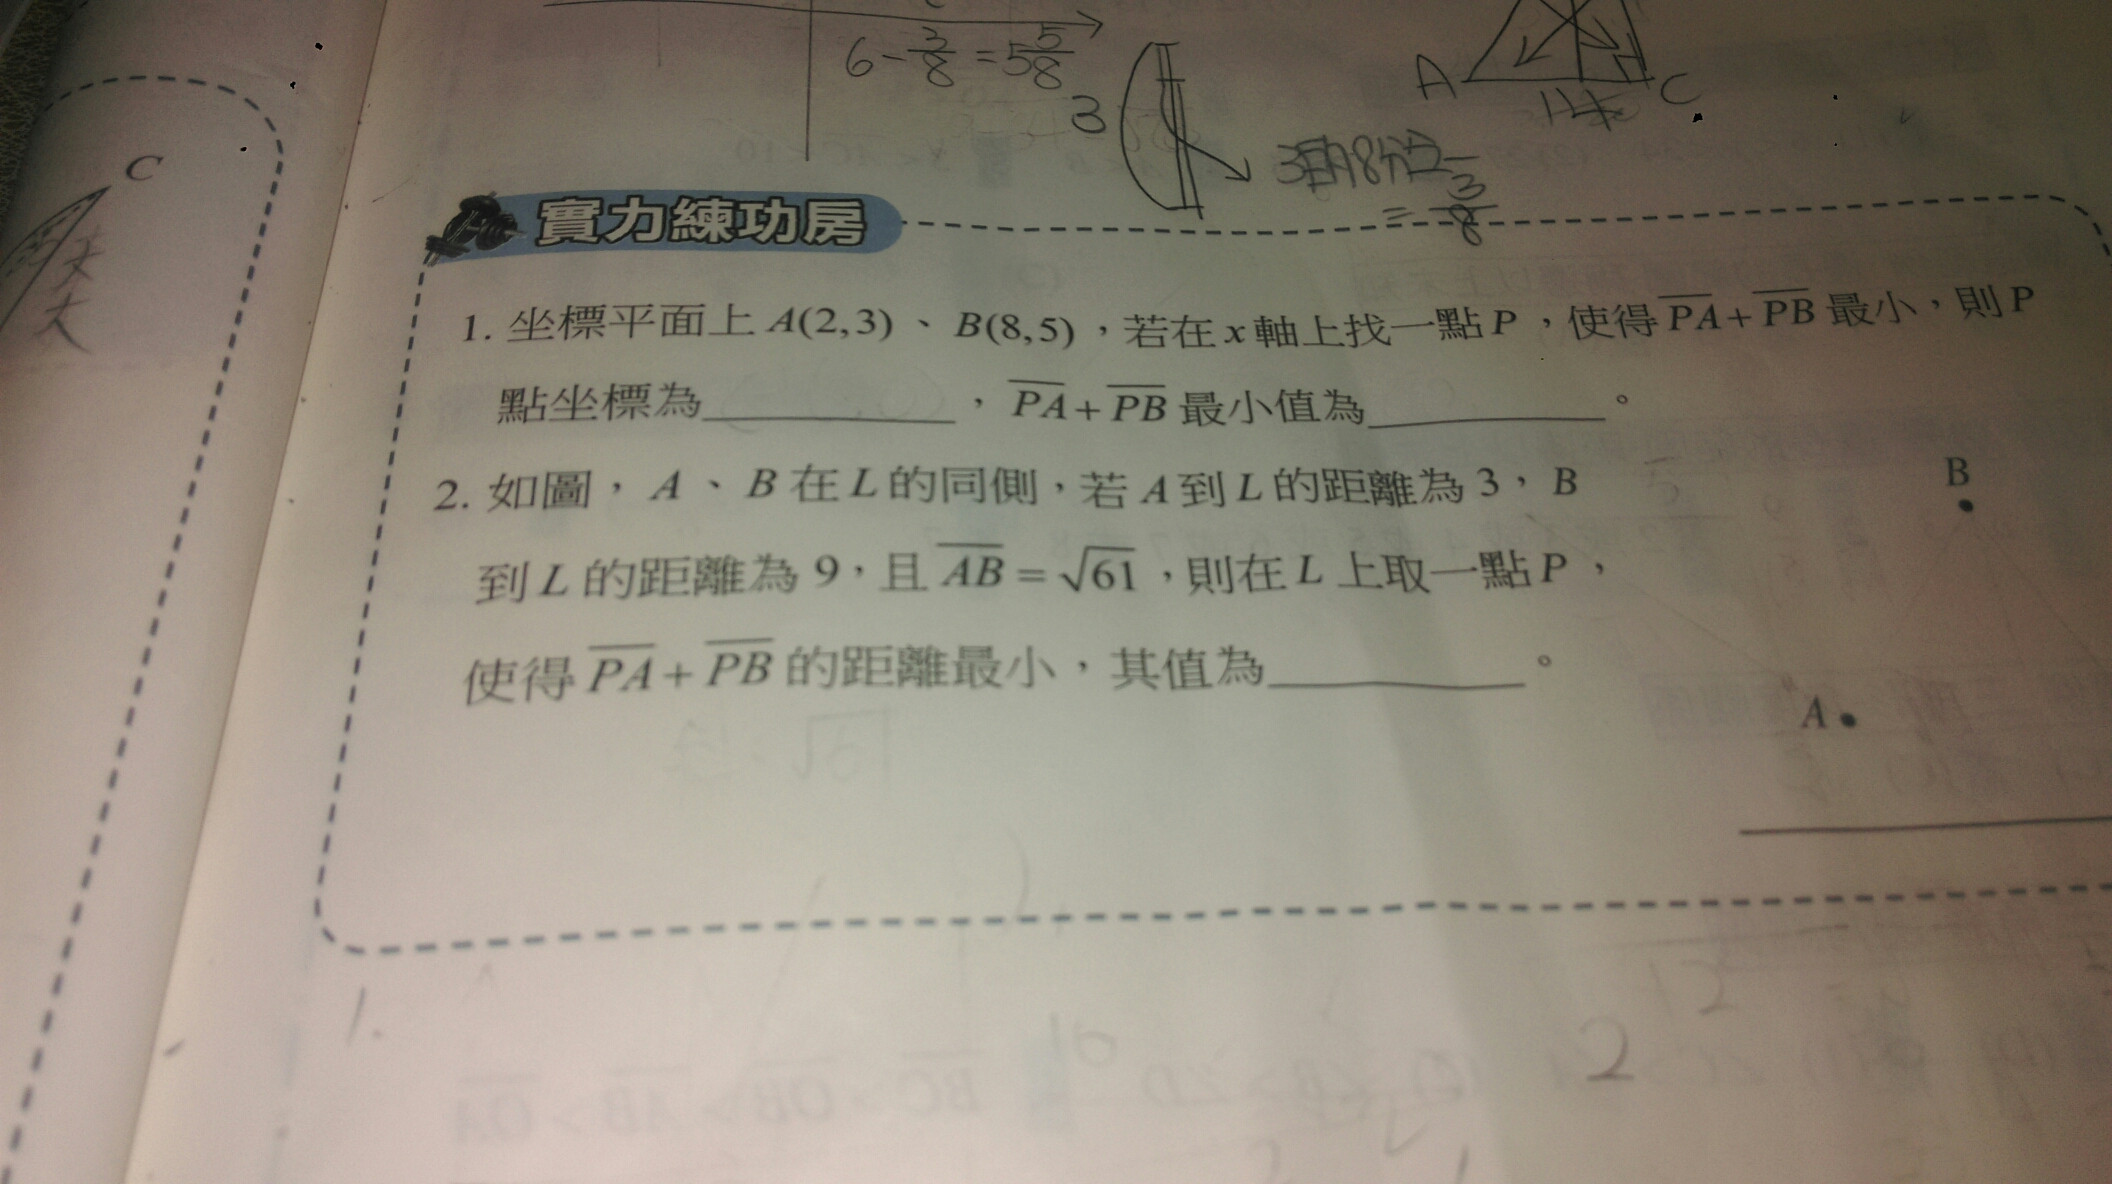 6 - 3/8 = 5 5/8
3
A
C
3/8
= 3/8
C
實力練功房
1. 坐標平面上 A(2,3)、B(8,5),若在 x 軸上找一點 P,使得 PA + PB 最小,則 P
點坐標為__________,PA + PB 最小值為__________。
2. 如圖,A、B 在 L 的同側,若 A 到 L 的距離為 3,B
到 L 的距離為 9,且 AB = √61,則在 L 上取一點 P,
使得 PA + PB 的距離最小,其值為__________。
B
A
1.
2